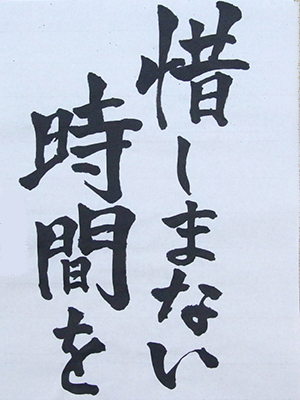 惜しまない
時間を